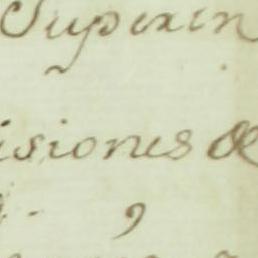 Superin
isiones &